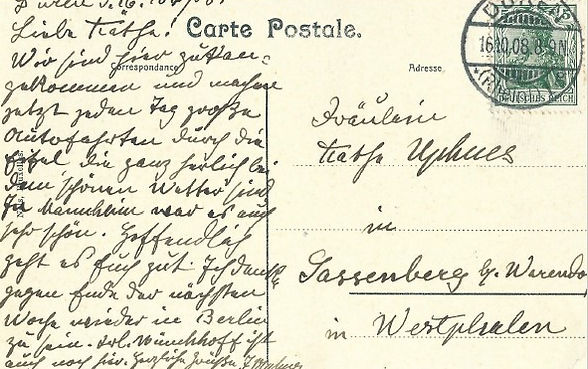 Düren d. 16. 10. 08.
Carte Postale.
Correspondance
Adresse
DÜREN
16.10.08. 8-9N.
(RHEINL)
DEUTSCHES REICH
5
Liebe Käthe!
Wir sind hier
gekommen und machen
jetzt jeden Tag große
Autofahrten durch die
Eifel, die ganz herlich bei
dem schönen Wetter sind.
In Mannheim war es auch
sehr schön. Hoffendlich
geht es Euch gut. Ich denke
gegen Ende der nächsten
Woche wieder in Berlin
zu sein. Frl. Münchhoff ist
auch noch hier. Herzliche Grüße
Fräulein
Käthe Uphues
in
Sassenberg b/. Warendo
in Westphalen